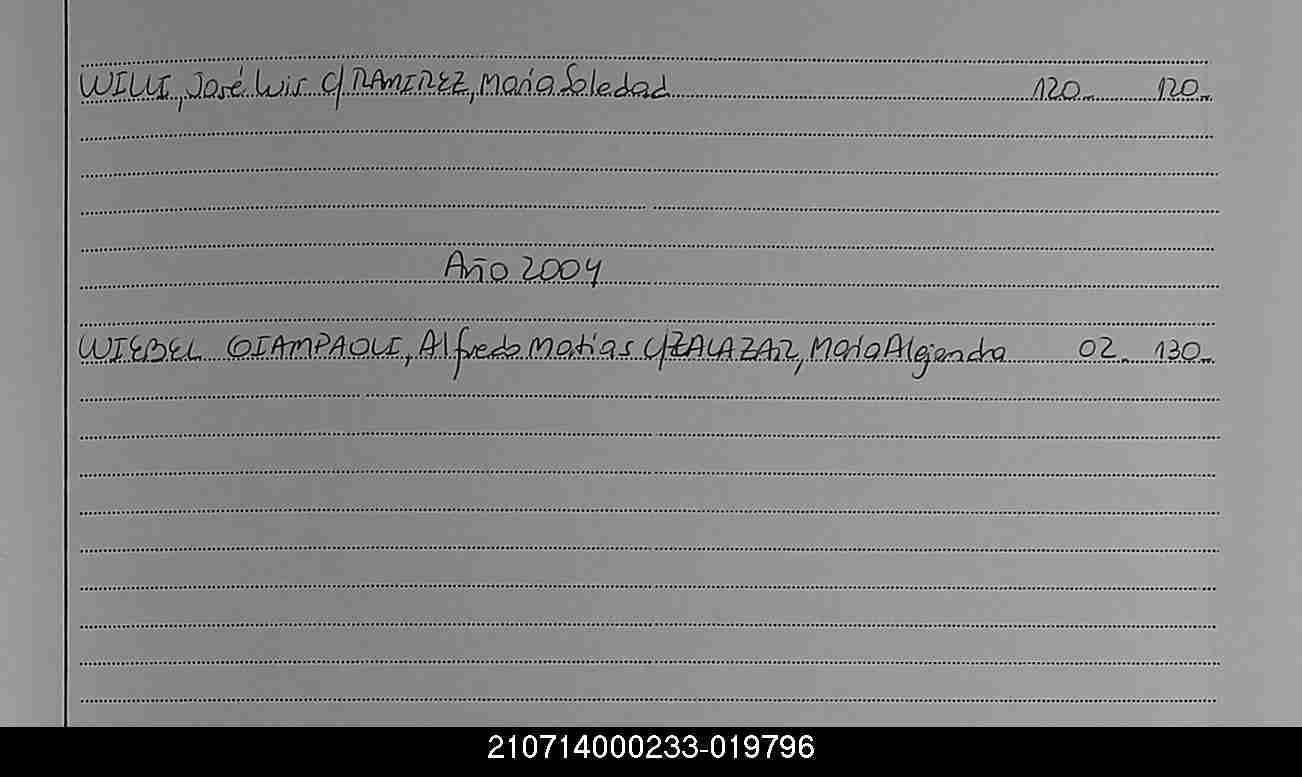 WILLI, José Luis c/ RAMIREZ, María Soledad 120.- 120.-
Año 2004
WIEBEL GIAMPAOLI, Alfredo Matías c/ ZALAZAR, María Alejandra 02.- 130.-
210714000233-019796